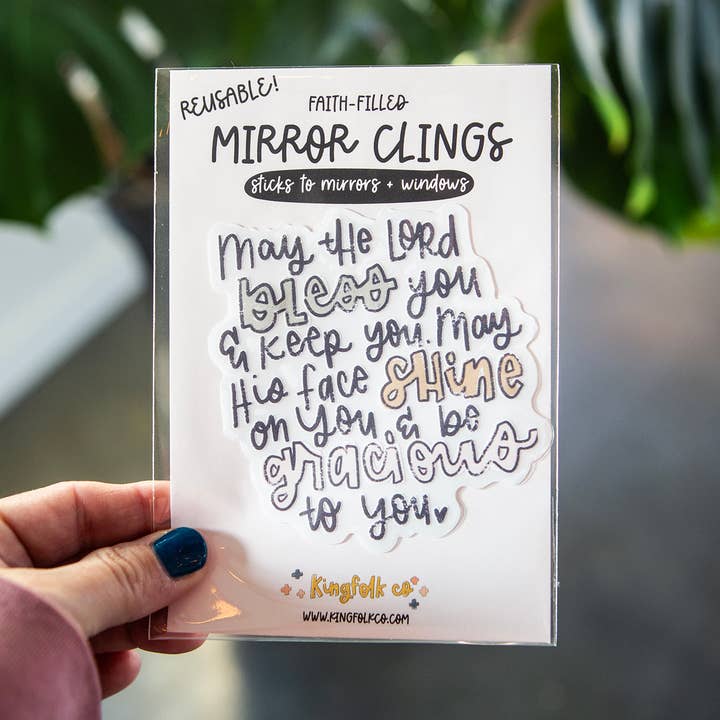 REUSABLE!
FAITH-FILLED
MIRROR CLINGS
sticks to mirrors + windows
May the LORD
bless you
& keep you. May
His face shine
on you, & be
gracious
to you
Kingfolk co
WWW.KINGFOLKCO.COM